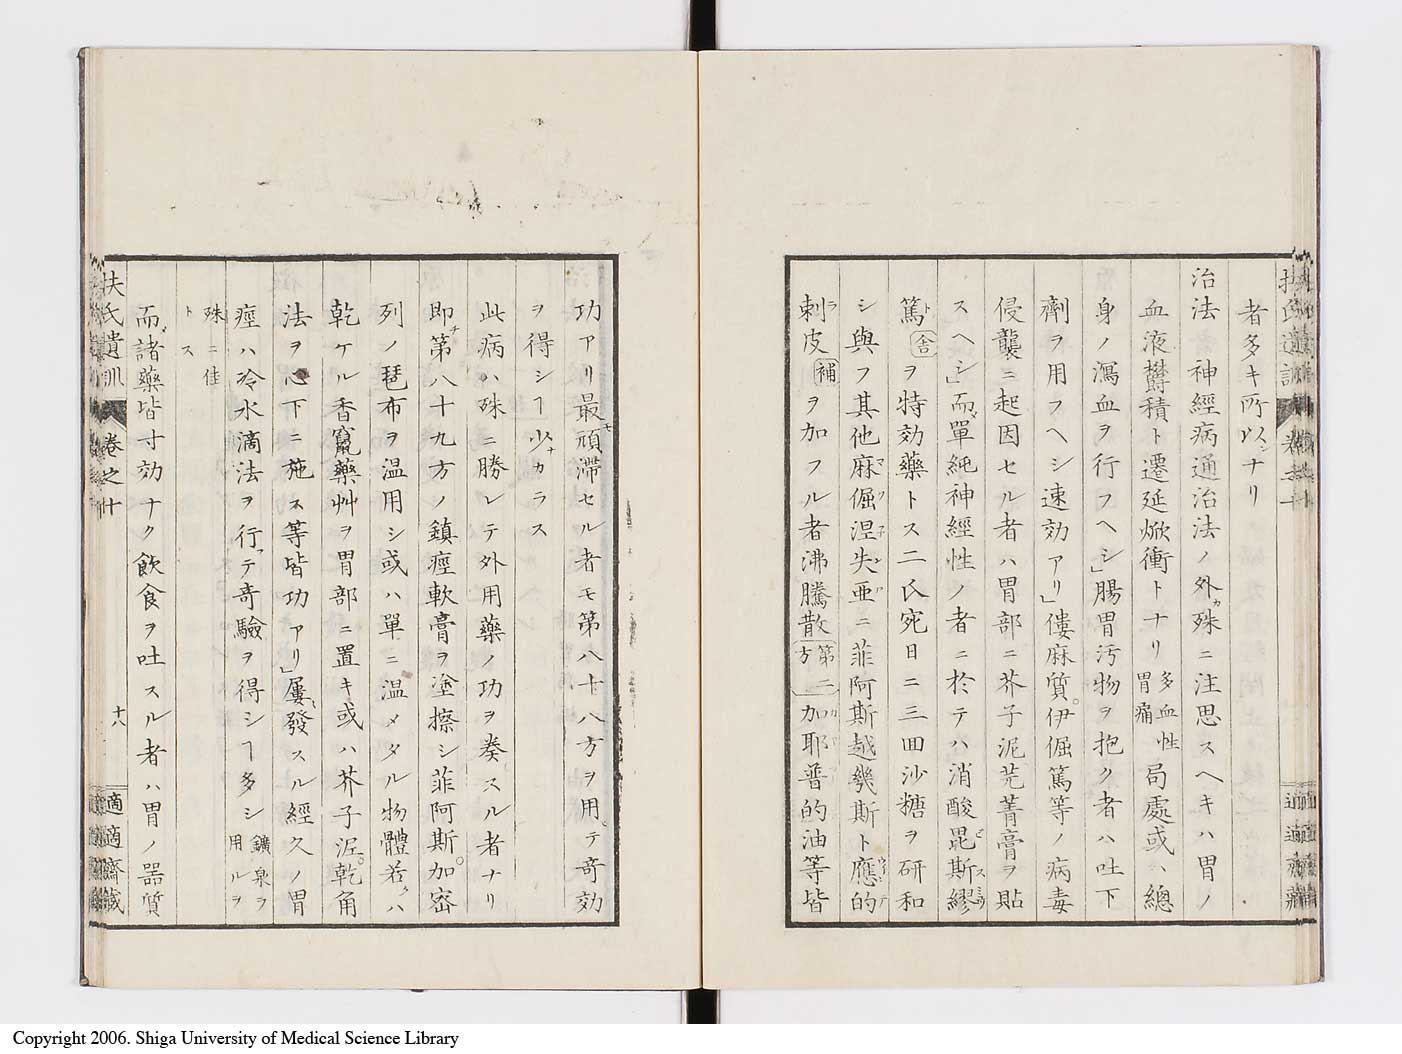 者多キ所以ナリ
治法 神經病通治法ノ外殊ニ注思スヘキハ胃ノ
血液欝積ト遷延焮衝トナリ多血性胃痛局處或ハ總
身ノ瀉血ヲ行フヘシ」腸胃汚物ヲ抱ク者ハ吐下
劑ヲ用フヘシ速効アリ」僂麻質。伊倔篤等ノ病毒
侵襲ニ起因セル者ハ胃部ニ芥子泥芫菁膏ヲ貼
スヘシ」而單純神經性ノ者ニ於テハ消酸毘斯繆
篤舎ヲ特効藥トス二氏宛日ニ三四沙糖ヲ研和
シ與フ其他麻倔涅失亜ニ菲阿斯越幾斯ト應的
剌皮補ヲ加フル者沸騰散第二方加耶普的油等皆
扶氏遺訓 卷之十
適適齋藏
功アリ最頑滞セル者モ第八十八方ヲ用テ奇効
ヲ得シヿ少カラス
此病ハ殊ニ勝レテ外用藥ノ功ヲ奏スル者ナリ
即第八十九方ノ鎮痙軟膏ヲ塗擦シ菲阿斯。加密
列ノ琶布ヲ温用シ或ハ單ニ温メタル物體若ハ
乾ケル香竄藥艸ヲ胃部ニ置キ或ハ芥子泥。乾角
法ヲ心下ニ施ス等皆功アリ」屢發スル經久ノ胃
痙ハ冷水滴法ヲ行テ奇驗ヲ得シヿ多シ鑛泉ヲ用ルヲ
殊ニ佳トス
而諸藥皆寸効ナク飲食ヲ吐スル者ハ胃ノ器質
扶氏遺訓 卷之十 十八 適適齋藏
Copyright 2006. Shiga University of Medical Science Library